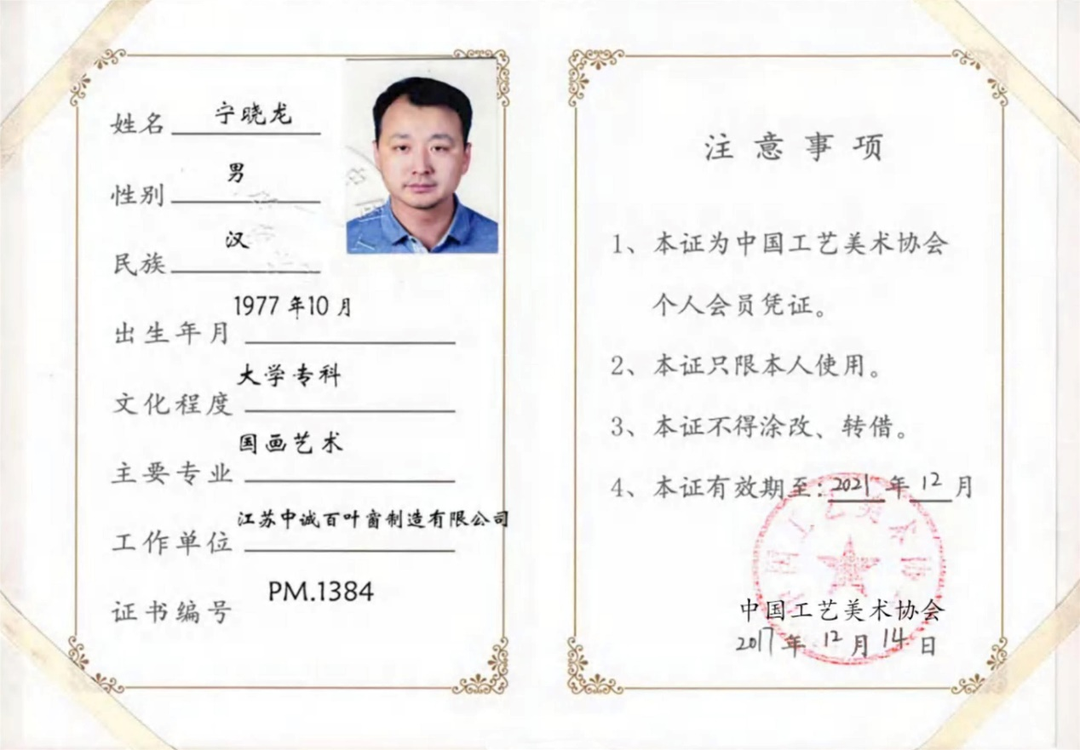 姓名 宁晓龙
性别 男
民族 汉
出生年月 1977年10月
文化程度 大学专科
主要专业 国画艺术
工作单位 江苏中诚百叶窗制造有限公司
证书编号 PM.1384
注意事项
1、本证为中国工艺美术协会
个人会员凭证。
2、本证只限本人使用。
3、本证不得涂改、转借。
4、本证有效期至:2021年12月
中国工艺美术协会
2017年12月14日